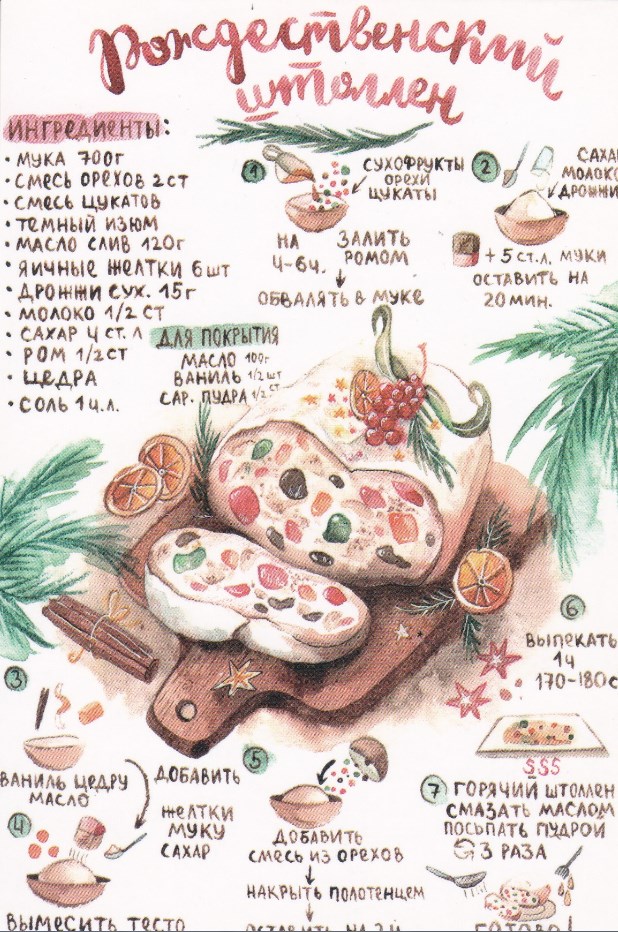 Рождественский
штоллен
ИНГРЕДИЕНТЫ:
• МУКА 700г
• СМЕСЬ ОРЕХОВ 2 СТ
• СМЕСЬ ЦУКАТОВ
• ТЕМНЫЙ ИЗЮМ
• МАСЛО СЛИВ 120г
• ЯИЧНЫЕ ЖЕЛТКИ 6 шт
• ДРОЖЖИ СУХ. 15г
• МОЛОКО 1/2 СТ
• САХАР 4 СТ. Л
• РОМ 1/2 СТ
• ЦЕДРА
• СОЛЬ 1 ч.л.
ДЛЯ ПОКРЫТИЯ
МАСЛО 100г
ВАНИЛЬ 1/2 шт
САР. ПУДРА 1/2 СТ
1
СУХОФРУКТЫ
ОРЕХИ
ЦУКАТЫ
НА 4-6ч.
ЗАЛИТЬ РОМОМ
ОБВАЛЯТЬ В МУКЕ
2
САХА
МОЛОКО
ДРОЖЖИ
+ 5 СТ.Л. МУКИ
ОСТАВИТЬ НА
20 МИН.
3
ВАНИЛЬ ЦЕДРУ
МАСЛО
ДОБАВИТЬ
ЖЕЛТКИ
МУКУ
САХАР
4
ВЫМЕСИТЬ ТЕСТО
5
ДОБАВИТЬ
СМЕСЬ ИЗ ОРЕХОВ
НАКРЫТЬ ПОЛОТЕНЦЕМ
ОСТАВИТЬ НА 2 Ч
6
ВЫПЕКАТЬ
1 ч
170-180С
7
ГОРЯЧИЙ ШТОЛЛЕН
СМАЗАТЬ МАСЛОМ
ПОСЫПАТЬ ПУДРОЙ
3 РАЗА
ГОТОВО!